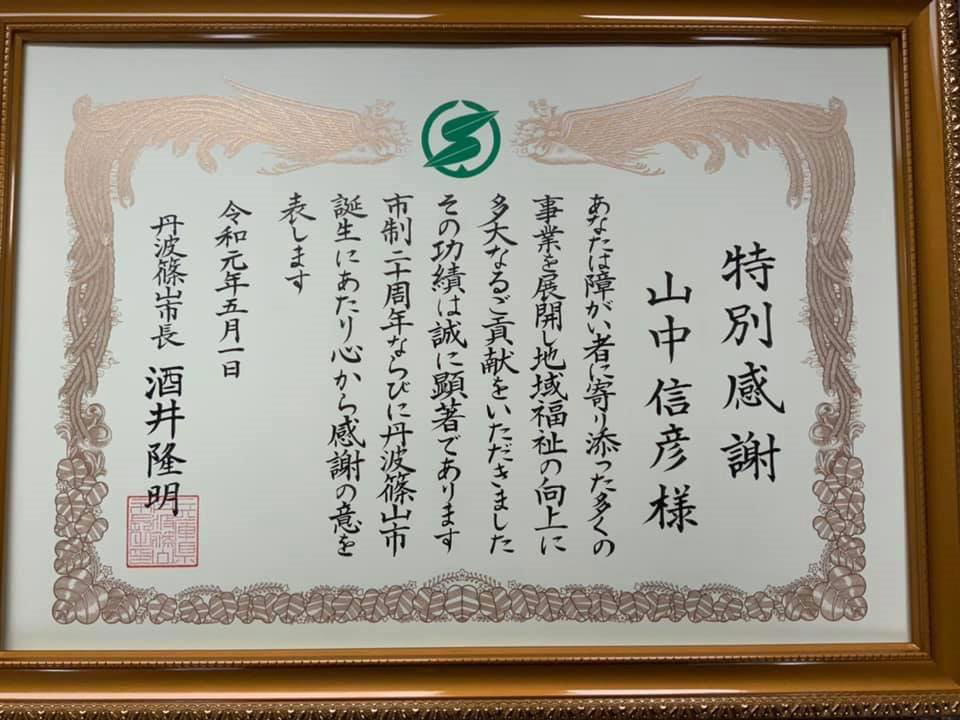 特別感謝
山中信彦様
あなたは障がい者に寄り添った多くの
事業を展開し地域福祉の向上に
多大なるご貢献をいただきました
その功績は誠に顕著であります
市制二十周年ならびに丹波篠山市
誕生にあたり心から感謝の意を
表します
令和元年五月一日
丹波篠山市長 酒井隆明